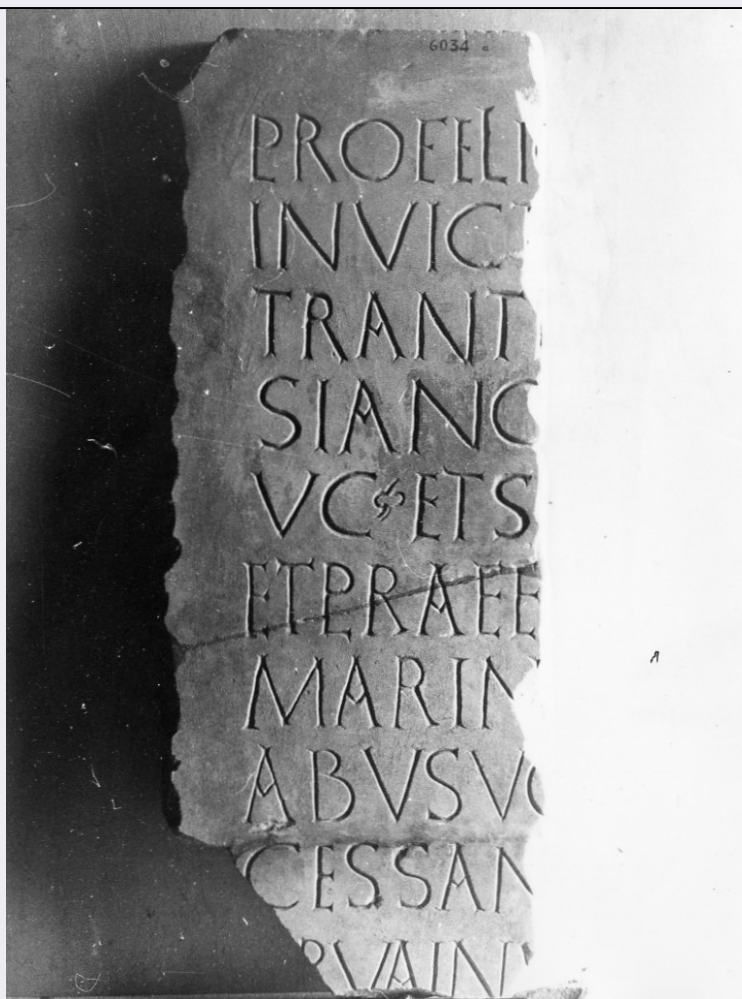 6034 a
PROFELI
INVICT
TRANT
SIANO
VC ET S
ETPRAEF
MARIN
ABVSVC
CESSAN
RVAIN